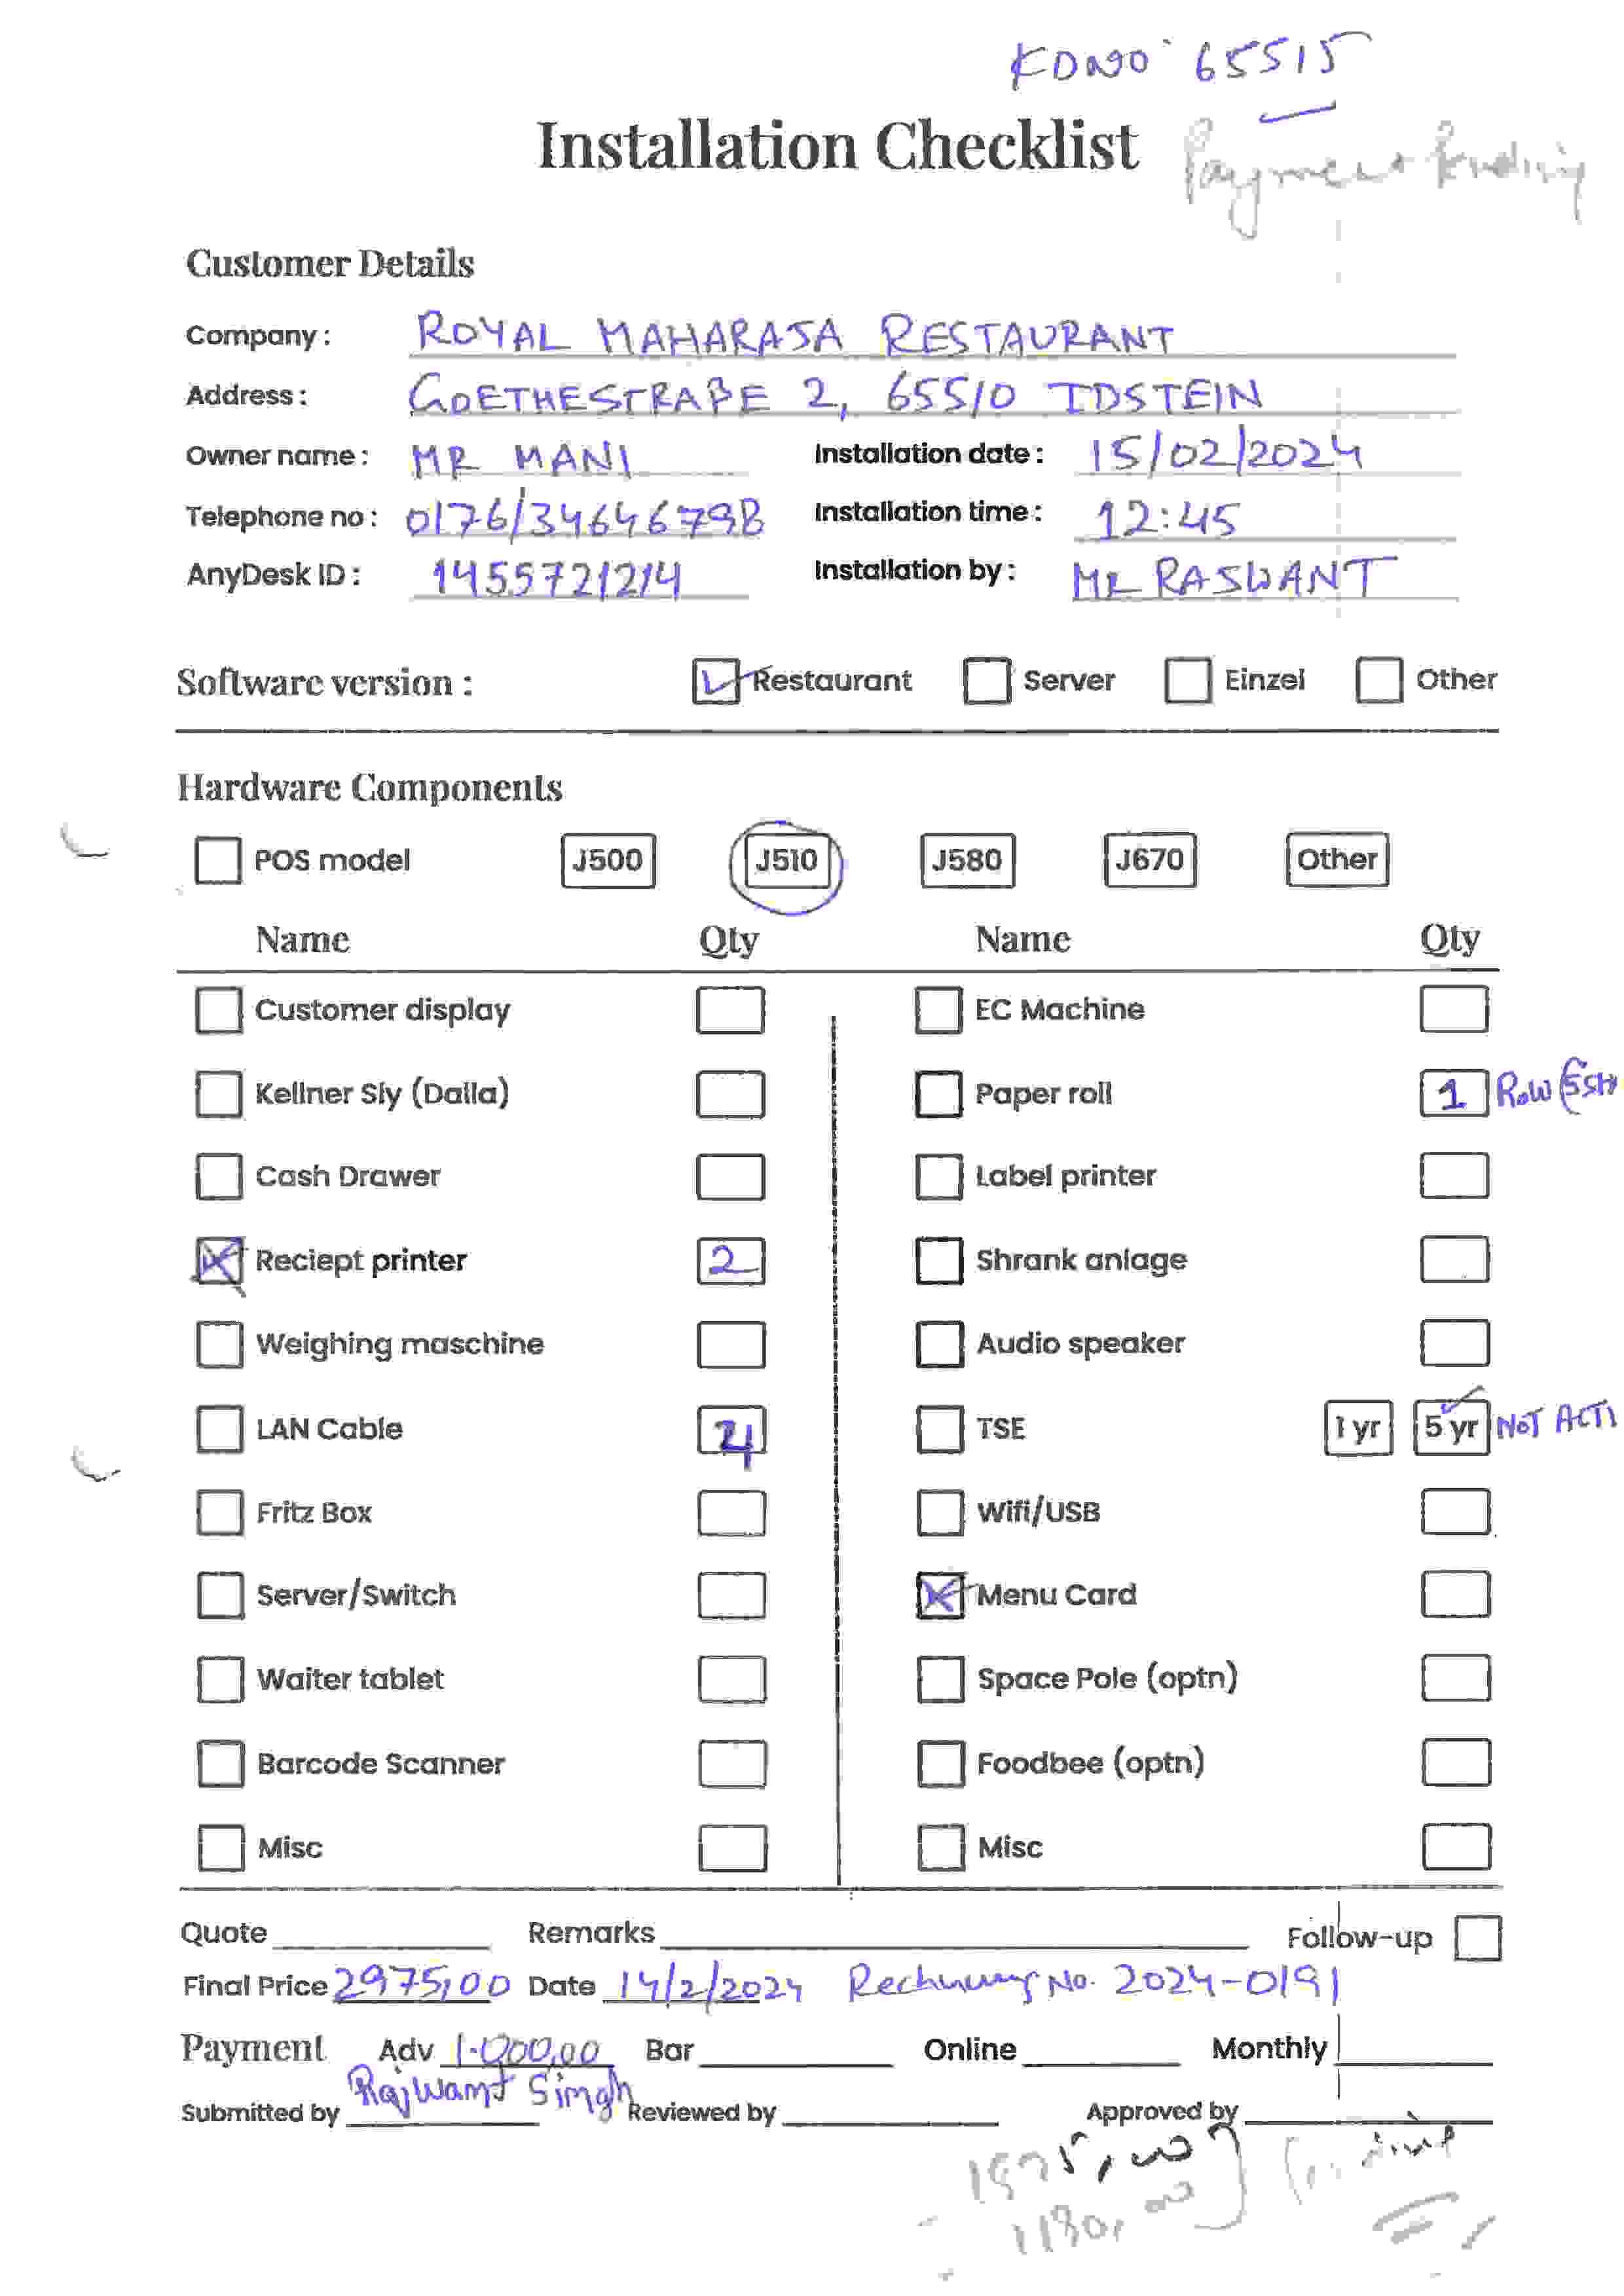 KDNO: 65515
Installation Checklist
Payment Pending
Customer Details
Company: ROYAL MAHARAJA RESTAURANT
Address: GOETHESTRAßE 2, 65510 IDSTEIN
Owner name: MR MANI Installation date: 15/02/2024
Telephone no: 0176/34646798 Installation time: 12:45
AnyDesk ID: 1455721214 Installation by: MR RASWANT
Software version: Restaurant Server Einzel Other
Hardware Components
POS model J500 J510 J580 J670 Other
Name Qty Name Qty
Customer display EC Machine
Kellner Sly (Dalla) Paper roll 1
Cash Drawer Label printer
Reciept printer 2 Shrank anlage
Weighing maschine Audio speaker
LAN Cable 4 TSE 1 yr 5 yr NOT ACTI
Fritz Box Wifi/USB
Server/Switch Menu Card
Waiter tablet Space Pole (optn)
Barcode Scanner Foodbee (optn)
Misc Misc
Quote Remarks Follow-up
Final Price 2975,00 Date 14/2/2024 Rechnung No. 2024-0191
Payment Adv 1.000,00 Bar Online Monthly
Submitted by Rajwant Singh Reviewed by Approved by